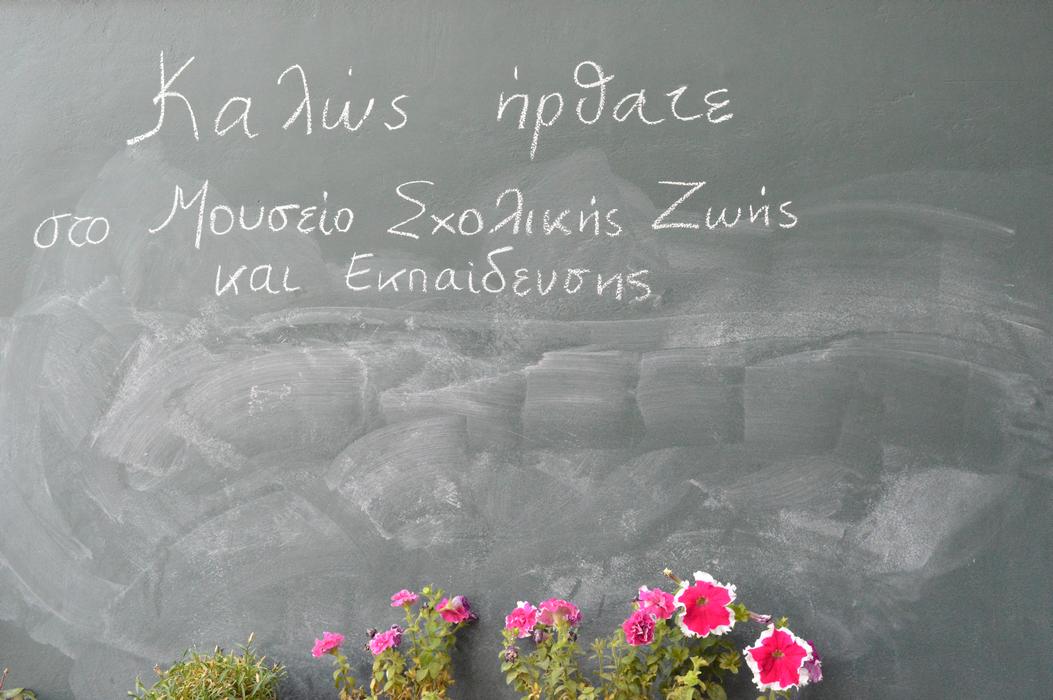 Καλώς ήρθατε
στο Μουσείο Σχολικής Ζωής
και Εκπαίδευσης